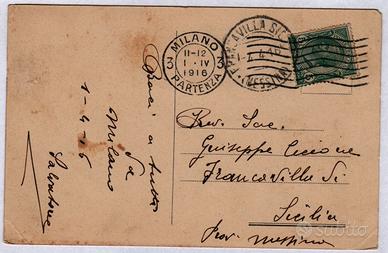 MILANO
11-12
1 · IV
1916
PARTENZA
FRANCAVILLA SIC
(MESSINA)
Baci a tutti
Da
Milano
1-4-16
Salvatore
Rev. Sac.
Giuseppe Ciccione
Francavilla Si.
Sicilia
Prov. Messina
subito.it